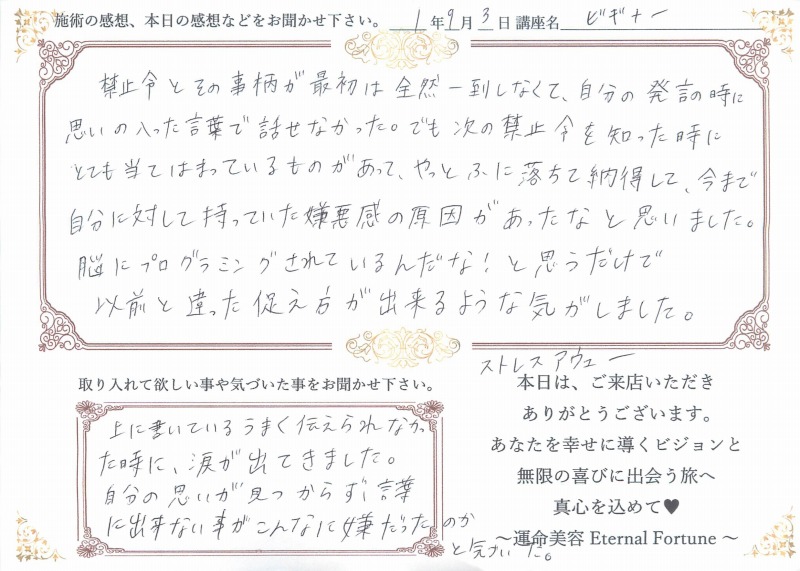 施術の感想、本日の感想などをお聞かせ下さい。 1年9月3日 講座名 ビギナー
禁止令とその事柄が最初は全然一到しなくて、自分の発言の時に
思いの入った言葉で話せなかった。でも次の禁止令を知った時に
とても当てはまっているものがあって、やっとふに落ちて納得して、今まで
自分に対して持っていた嫌悪感の原因があったなと思いました。
脳にプログラミングされているんだな!と思うだけで
以前と違った促え方が出来るような気がしました。
ストレスアウェー
取り入れて欲しい事や気づいた事をお聞かせ下さい。
上に書いているうまく伝えられなかっ
た時に、涙が出てきました。
自分の思いが見つからず、言葉
に出来ない事がこんなに嫌だったのか
と気づいた。
本日は、ご来店いただき
ありがとうございます。
あなたを幸せに導くビジョンと
無限の喜びに出会う旅へ
真心を込めて♥
～運命美容 Eternal Fortune ～